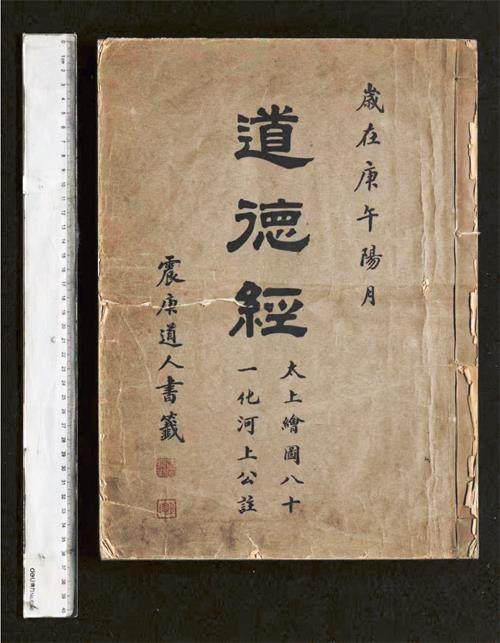 歲在庚午陽月
道德經
太上繪圖八十
一化河上公註
震庚道人書籤